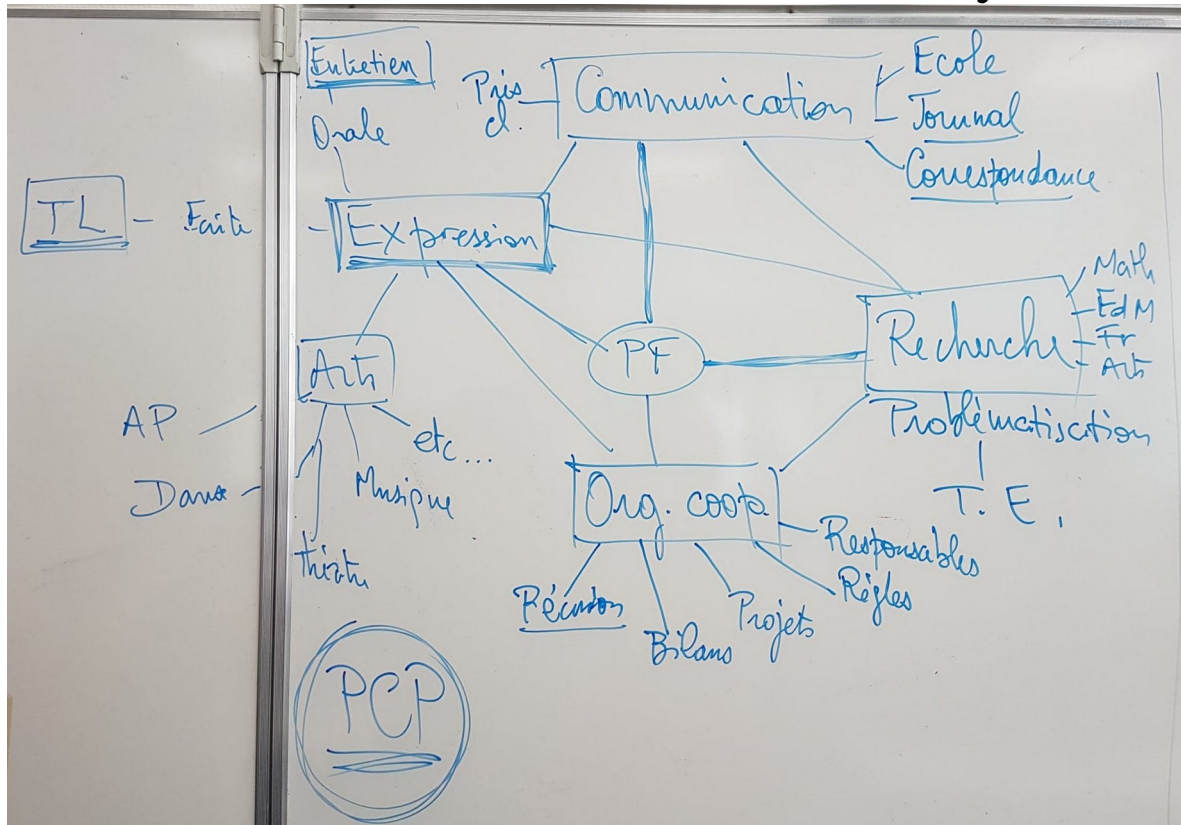 Entretien
Orale
Prés
cl.
Communication
Ecole
Journal
Correspondance
TL
Ecrite
Expression
Math
EdM
Fr
Arts
Recherche
PF
Arts
AP
Danse
théâtre
Musique
etc...
Problématisation
T. E.
Org. coopé
Responsables
Règles
Projets
Bilans
Réunion
PCP